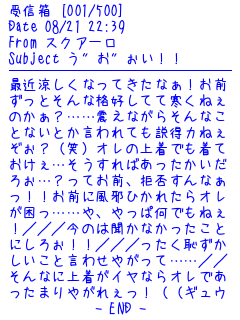 受信箱 [001/500]
Date 08/21 22:39
From スクアーロ
Subject う゛お゛ぉい！！
最近涼しくなってきたなぁ！お前
ずっとそんな格好してて寒くねぇ
のかぁ？……震えながらそんなこ
とないとか言われても説得力ねぇ
ぞぉ？（笑）オレの上着でも着て
おけぇ…そうすればあったかいだ
ろぉ…？ってお前、拒否すんなぁ
っ！！お前に風邪ひかれたらオレ
が困っ……や、やっぱ何でもねぇ
！／／／今のは聞かなかったこと
にしろぉ！！／／／ったく恥ずか
しいこと言わせやがって……／／
そんなに上着がイヤならオレであ
ったまりやがれぇっ！（（ギュウ
- END -